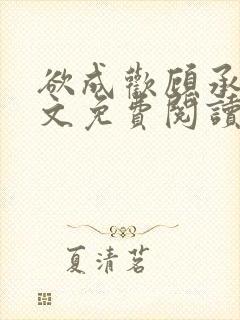 欲成歡顧承
文免費閱讀
夏清茗